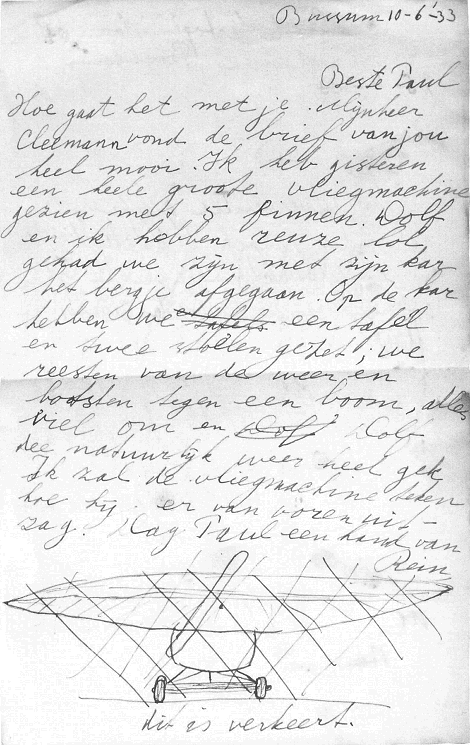 Bussum 10-6-'33
Beste Paul
Hoe gaat het met je. Mijnheer
Cleemann vond de brief van jou
heel mooi. Ik heb gisteren
een heele groote vliegmachine
gezien met 5 finnen. Dolf
en ik hebben reuze lol
gehad we zijn met zijn kar
het bergje afgegaan. Op de kar
hebben we een tafel
en twee stoelen gezet; we
reesten van de weer en
bootsten tegen een boom, alles
viel om en Dolf Dolf
dee natuurlijk weer heel gek
Ik zal de vliegmachine teken
hoe hij er van voren uit-
zag. Dag Paul een hand van
Rein
dit is verkeert.